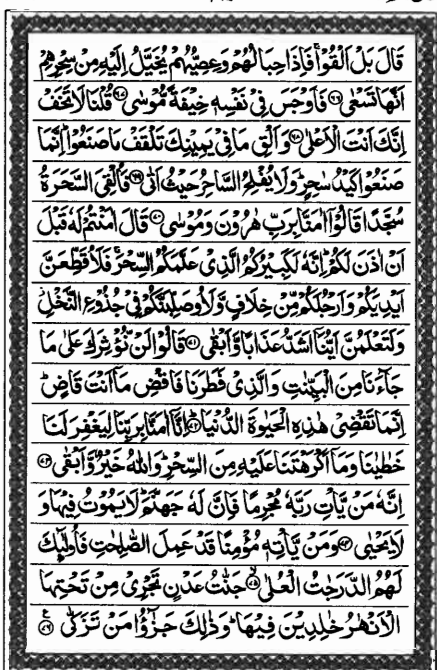 قَالَ بَلْ اَلْقُوْاۚ فَاِذَا حِبَالُهُمْ وَعِصِيُّهُمْ يُخَيَّلُ اِلَيْهِ مِنْ سِحْرِهِمْ
اَنَّهَا تَسْعٰى ۶۶ فَاَوْجَسَ فِيْ نَفْسِهٖ خِيْفَةً مُّوْسٰى ۶۷ قُلْنَا لَا تَخَفْ
اِنَّكَ اَنْتَ الْاَعْلٰى ۶۸ وَاَلْقِ مَا فِيْ يَمِيْنِكَ تَلْقَفْ مَا صَنَعُوْاؕ اِنَّمَا
صَنَعُوْا كَيْدُ سٰحِرٍؕ وَلَا يُفْلِحُ السَّاحِرُ حَيْثُ اَتٰى ۶۹ فَاُلْقِيَ السَّحَرَةُ
سُجَّدًا قَالُوْۤا اٰمَنَّا بِرَبِّ هٰرُوْنَ وَمُوْسٰى ۷۰ قَالَ اٰمَنْتُمْ لَهٗ قَبْلَ
اَنْ اٰذَنَ لَكُمْؕ اِنَّهٗ لَكَبِيْرُكُمُ الَّذِيْ عَلَّمَكُمُ السِّحْرَۚ فَلَاُقَطِّعَنَّ
اَيْدِيَكُمْ وَاَرْجُلَكُمْ مِّنْ خِلَافٍ وَّلَاُوصَلِّبَنَّكُمْ فِيْ جُذُوْعِ النَّخْلِ
وَلَتَعْلَمُنَّ اَيُّنَاۤ اَشَدُّ عَذَابًا وَّاَبْقٰى ۷۱ قَالُوْا لَنْ نُّؤْثِرَكَ عَلٰى مَا
جَآءَنَا مِنَ الْبَيِّنٰتِ وَالَّذِيْ فَطَرَنَا فَاقْضِ مَاۤ اَنْتَ قَاضٍؕ
اِنَّمَا تَقْضِيْ هٰذِهِ الْحَيٰوةَ الدُّنْيَاؕ ۷۲ اِنَّاۤ اٰمَنَّا بِرَبِّنَا لِيَغْفِرَ لَنَا
خَطٰيٰنَا وَمَاۤ اَكْرَهْتَنَا عَلَيْهِ مِنَ السِّحْرِؕ وَاللّٰهُ خَيْرٌ وَّاَبْقٰى ۷۳
اِنَّهٗ مَنْ يَّاْتِ رَبَّهٗ مُجْرِمًا فَاِنَّ لَهٗ جَهَنَّمَؕ لَا يَمُوْتُ فِيْهَا وَ
لَا يَحْيٰى ۷۴ وَمَنْ يَّاْتِهٖ مُؤْمِنًا قَدْ عَمِلَ الصّٰلِحٰتِ فَاُولٰٓئِكَ
لَهُمُ الدَّرَجٰتُ الْعُلٰى ۷۵ جَنّٰتُ عَدْنٍ تَجْرِيْ مِنْ تَحْتِهَا
الْاَنْهٰرُ خٰلِدِيْنَ فِيْهَاؕ وَذٰلِكَ جَزٰٓؤُا مَنْ تَزَكّٰى ۷۶ ع